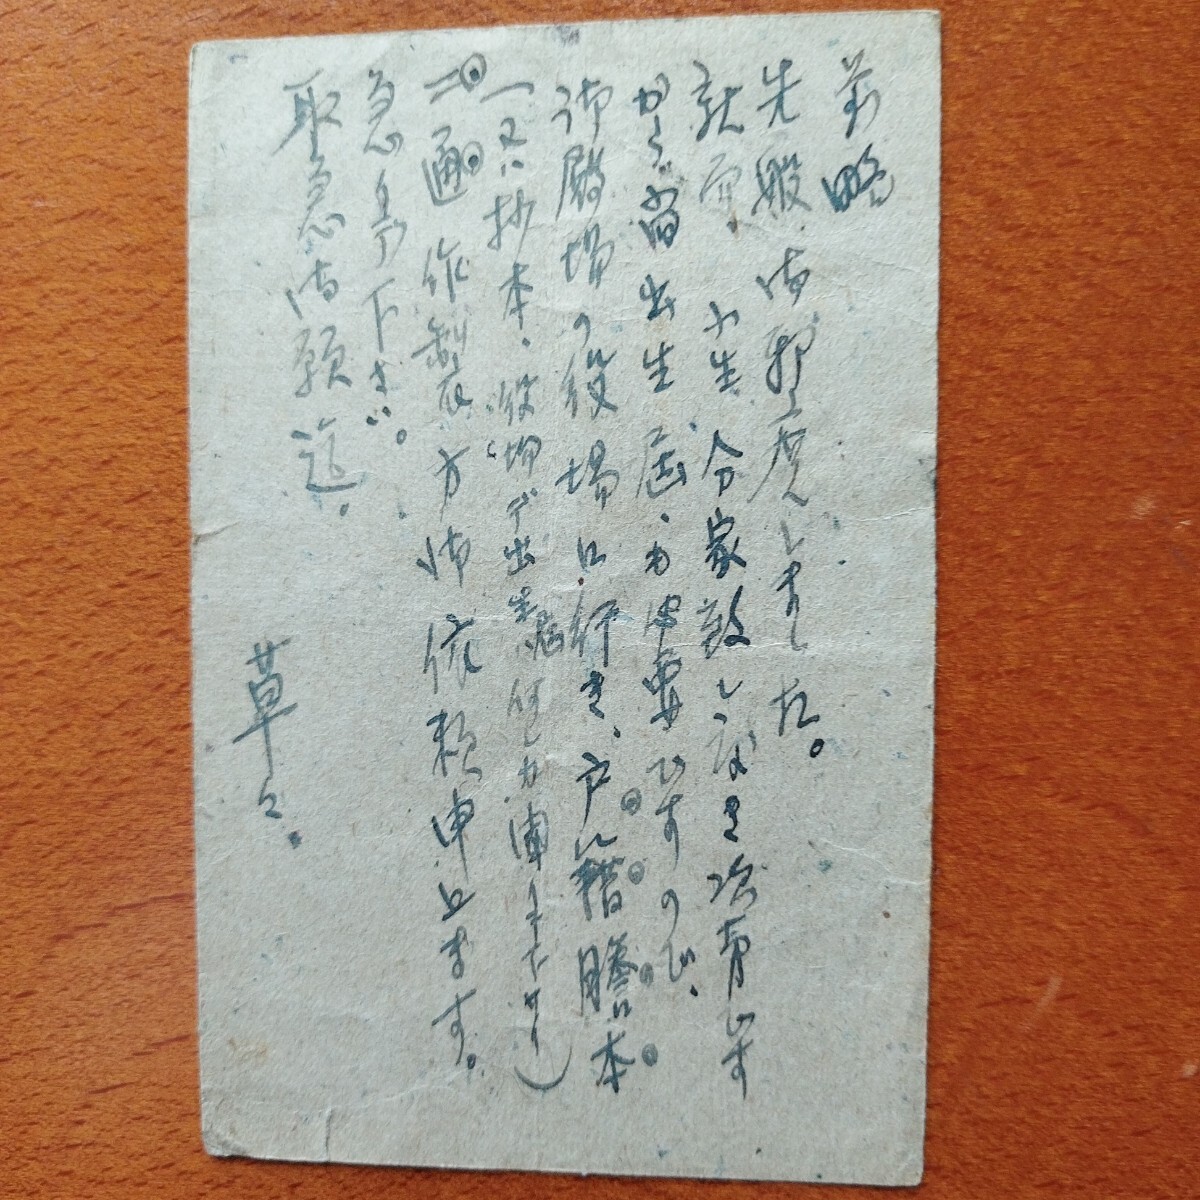 前略
先般は御邪魔しました。
就而、小生分家致しなき次第です
から、当出生届が必要ですので、
御殿場の役場に行き、戸籍謄本
(又ハ抄本、役場デ出生届何レカ
二通作製方御依頼申上ます。
急ぎ下さい。
取急御願迄。
草々。